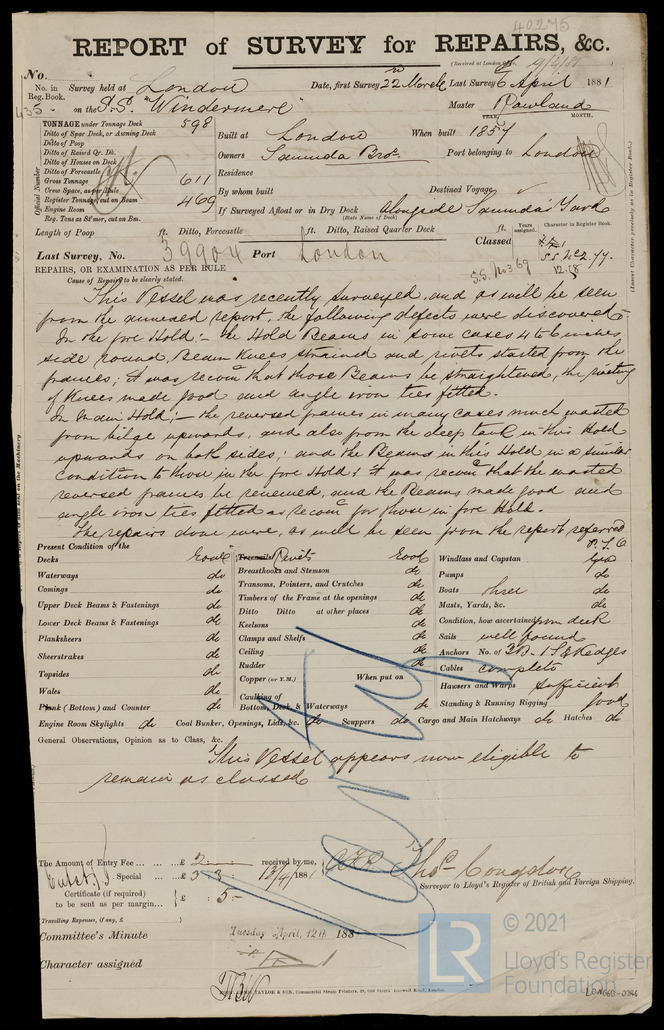 40275
REPORT of SURVEY for REPAIRS, &c.
(Received at London Office, 9/4/81
No.
No. in Reg. Book.
435
Survey held at London Date, first Survey 22nd March Last Survey 6 April 1881
on the S.S. "Windermere" Master Rowland
TONNAGE under Tonnage Deck 598
Ditto of Spar Deck, or Awning Deck
Ditto of Poop
Ditto of Raised Qr. Dk.
Ditto of Houses on Deck
Ditto of Forecastle
Gross Tonnage 611
Crew Space, as per Rule
Register Tonnage cut on Beam 469
Engine Room
Reg. Tons as St'mer, cut on Bm.
Official Number
YEAR. MONTH.
Built at London When built 1857
Owners Saunda Bros. Port belonging to London
Residence
By whom built Destined Voyage
If Surveyed Afloat or in Dry Dock alongside Saunda's Yard
(State Name of Dock)
Length of Poop ft. Ditto, Forecastle ft. Ditto, Raised Quarter Deck ft.
Years assigned. Character in Register Book.
Classed
S.S. No 2. 77.
S.S. No 3 69 12.78
(Insert Character precisely as in Register Book.)
Last Survey, No. 39904 Port London
REPAIRS, OR EXAMINATION AS PER RULE
Cause of Repairs to be clearly stated.
This Vessel was recently surveyed, and as will be seen
from the annexed report, the following defects were discovered -
In the fore Hold :- the Hold Beams in some cases 4 to 6 inches
side round, Beam Knees strained and rivets started from the
frames; it was recomd that those Beams be straightened, the riveting
of Knees made good and angle iron ties fitted.
In Main Hold; - the reversed frames in many cases much wasted
from bilge upwards, and also from the deep tank in this Hold
upwards on both sides; and the Beams in this Hold in a similar
condition to those in the fore Hold: it was recomd that the wasted
reversed frames be renewed, and the Beams made good and
angle iron ties fitted as recomd for those in fore Hold.
The repairs done were, as will be seen from the report referred
P.T.O
Present Condition of the
Decks Good
Waterways do
Comings do
Upper Deck Beams & Fastenings do
Lower Deck Beams & Fastenings do
Planksheers do
Sheerstrakes do
Topsides do
Wales do
Plank (Bottom) and Counter do
Engine Room Skylights do Coal Bunker, Openings, Lids, &c. do Scuppers do Cargo and Main Hatchways do Hatches do
Treenails Rivets Good
Breasthooks and Stemson do
Transoms, Pointers, and Crutches do
Timbers of the Frame at the openings do
Ditto Ditto at other places do
Keelsons do
Clamps and Shelfs do
Ceiling do
Rudder do
Copper (or Y.M.) When put on
Caulking of Bottom, Deck, & Waterways do
Windlass and Capstan Good
Pumps do
Boats three do
Masts, Yards, &c. do
Condition, how ascertained from deck
Sails well found
Anchors No. of 3 B. 1 S. & Kedges
Cables complete
Hawsers and Warps sufficient
Standing & Running Rigging good
General Observations, Opinion as to Class, &c.
This Vessel appears now eligible to
remain as classed
The Amount of Entry Fee ... ... ... £ 2 received by me,
Special ... £ 3 : 3 : 13/4/1881
Certificate (if required) to be sent as per margin... £ : 5 -
(Travelling Expenses, if any, £ )
Thos. Congdon
Surveyor to Lloyd's Register of British and Foreign Shipping.
Committee's Minute Tuesday April, 12th 188
Character assigned
TAYLOR & SON, Commercial Steam Printers,
LR
© 2021
Lloyd's Register
Foundation